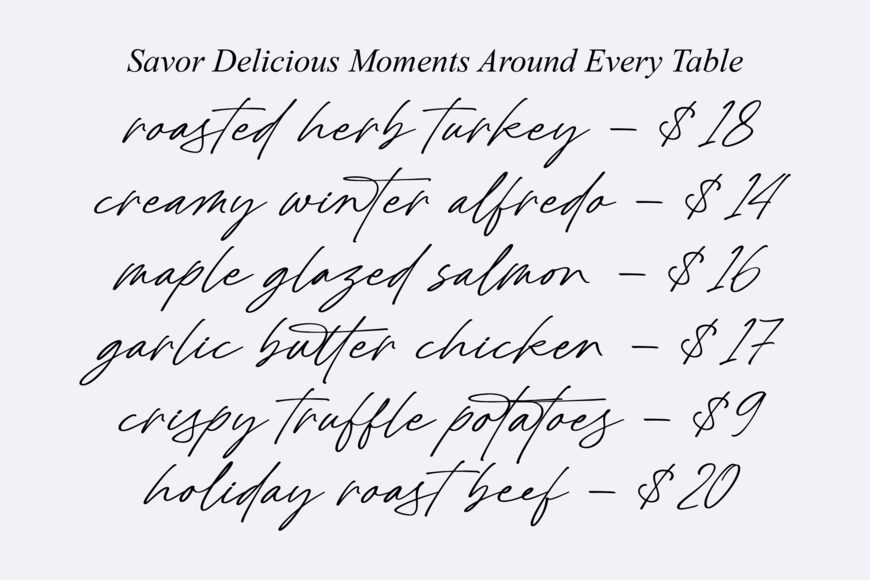 Savor Delicious Moments Around Every Table
roasted herb turkey – $18
creamy winter alfredo – $14
maple glazed salmon – $16
garlic butter chicken – $17
crispy truffle potatoes – $9
holiday roast beef – $20